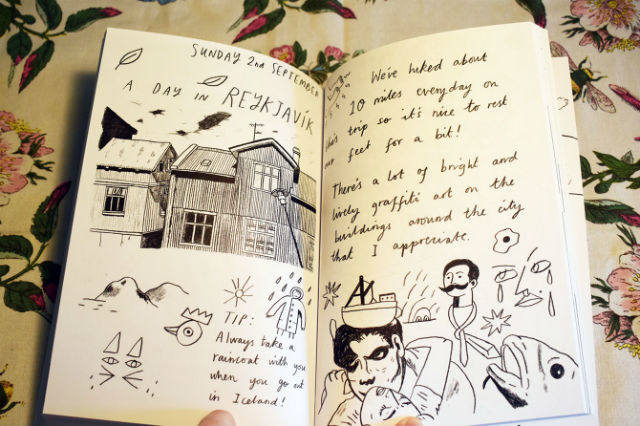 SUNDAY 2nd SEPTEMBER
A DAY IN REYKJAVÍK
TIP:
Always take a
raincoat with you
when you go out
in Iceland!
We've hiked about
10 miles everyday on
this trip so it's nice to rest
our feet for a bit!
There's a lot of bright and
lively graffiti art on the
buildings around the city
that I appreciate.